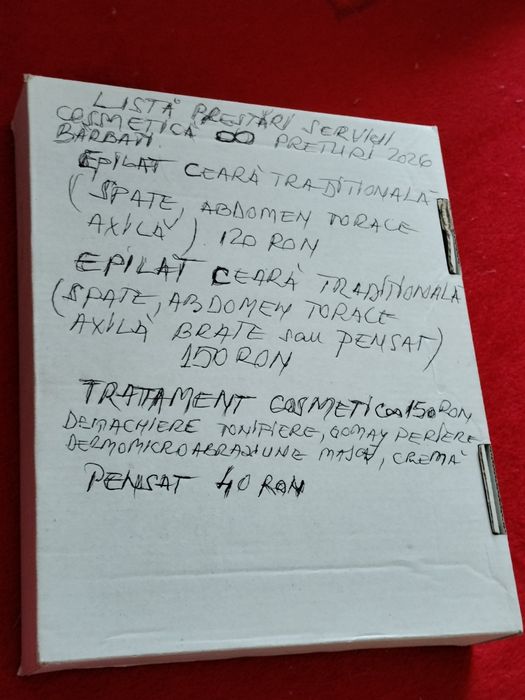 LISTĂ PRESTĂRI SERVICII
COSMETICĂ PRETURI 2026
BĂRBATI
EPILAT CEARĂ TRADITIONALĂ
(SPATE, ABDOMEN TORACE
AXILĂ) 120 RON
EPILAT CEARĂ TRADITIONALĂ
(SPATE, ABDOMEN TORACE
AXILĂ BRATE sau PENSAT)
150 RON
TRATAMENT COSMETIC 150 RON
DEMACHIERE TONIFIERE, GOMAY PERIERE
DERMOMICROABRAZIUNE MASCĂ, CREMĂ
PENSAT 40 RON